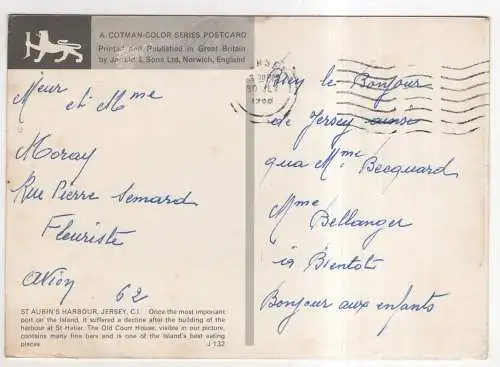 A COTMAN-COLOR SERIES POSTCARD
Printed and Published in Great Britain
by Jarrold & Sons Ltd, Norwich, England
Mieur
et Mme
Moray
Rue Pierre Semard
Fleuriste
avion
62
ST AUBIN'S HARBOUR, JERSEY, C.I. Once the most important
port on the Island, it suffered a decline after the building of the
harbour at St Helier. The Old Court House, visible in our picture,
contains many fine bars and is one of the Island's best eating
places.
J 132
le Bonjour
de Jersey ainsi
qua Mme Becquard
Mme
Bellanger
Bientot
Bonjour aux enfants